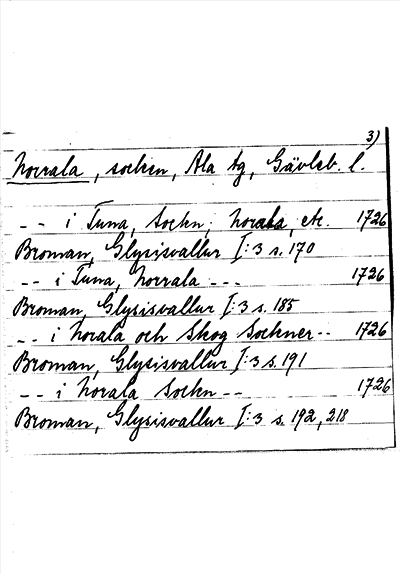 3)
Norrala, socken, Ala tg, Gävleb. l.
-- i Tuna, Sockn; Norala, etc. 1726
Broman, Glysisvallur I:3 s. 170
-- i Tuna, Norrala --- 1726
Broman, Glysisvallur I:3 s. 185
-- i Norala och Skog Sockner -- 1726
Broman, Glysisvallur I:3 s. 191
-- i Norala Sockn -- 1726
Broman, Glysisvallur I:3 s. 192, 218